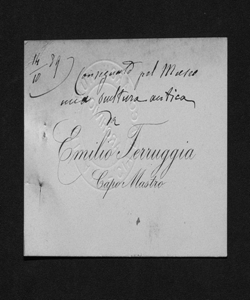 14/10 89
Consegnato pel Museo
una pittura antica
Da
Emilio Ferruggia
Capo Mastro